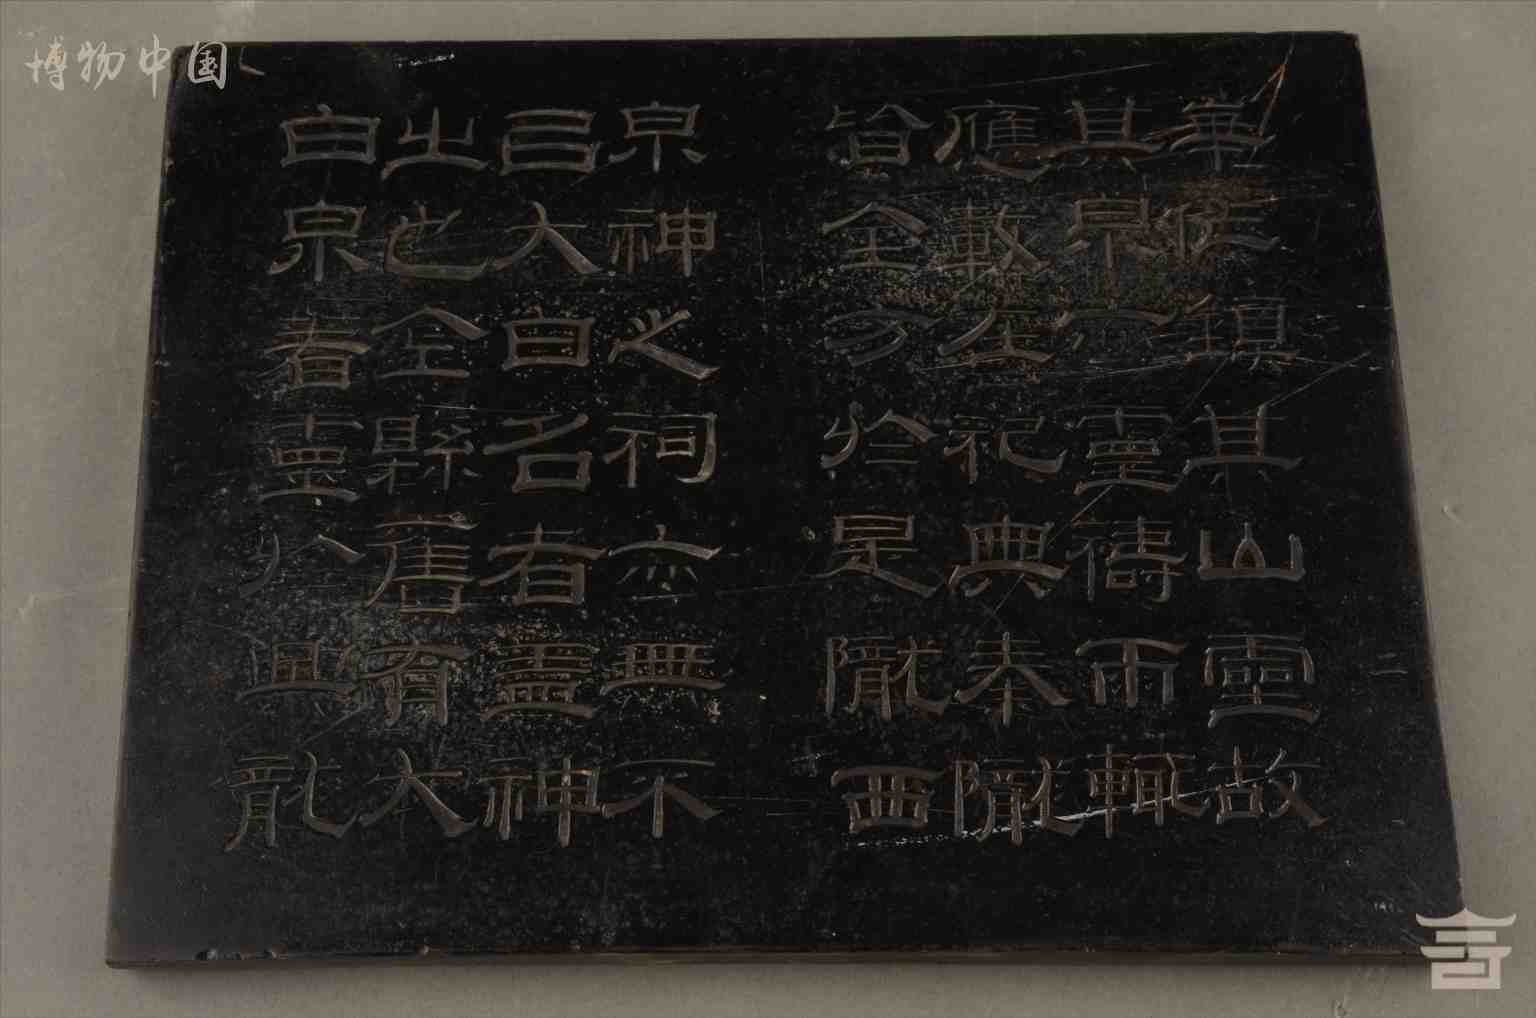 華佐鎮其山靈故
其泉亦靈禱雨輒
應載在祀典秦隴
皆金方於是隴西
泉神之祠亦無不
以大白名者蓋神
之也金縣舊有大
白泉者靈於興龍
博物中国